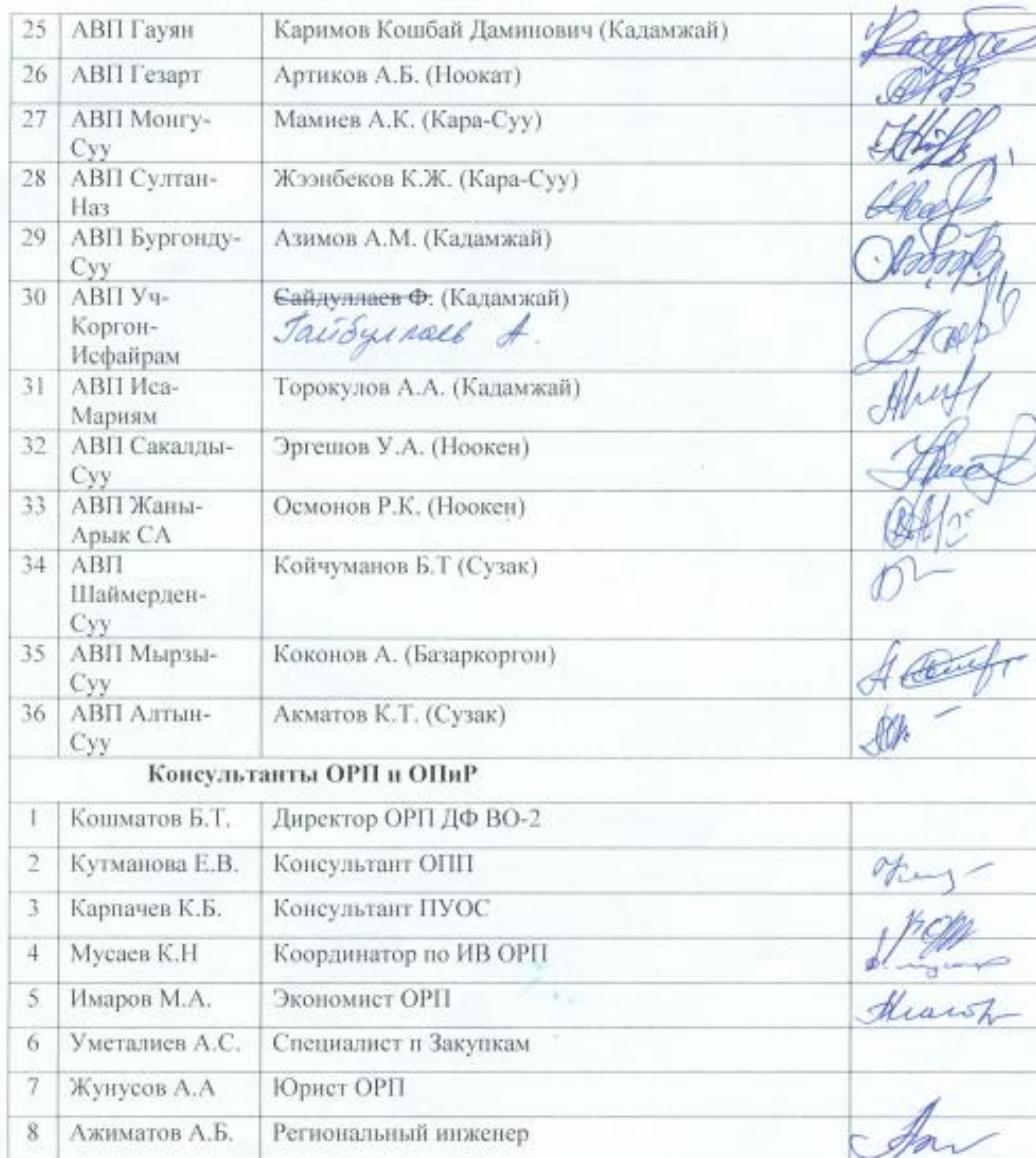 25 АВП Гауян Каримов Кошбай Даминович (Кадамжай)
26 АВП Гезарт Артиков А.Б. (Ноокат)
27 АВП Монгу- Мамиев А.К. (Кара-Суу)
Суу
28 АВП Султан- Жээнбеков К.Ж. (Кара-Суу)
Наз
29 АВП Бургонду- Азимов А.М. (Кадамжай)
Суу
30 АВП Уч- Сайдуллаев Ф. (Кадамжай)
Коргон- Гайбуллаев А.
Исфайрам
31 АВП Иса- Торокулов А.А. (Кадамжай)
Мариям
32 АВП Сакалды- Эргешов У.А. (Ноокен)
Суу
33 АВП Жаны- Осмонов Р.К. (Ноокен)
Арык СА
34 АВП Койчуманов Б.Т (Сузак)
Шаймерден-
Суу
35 АВП Мырзы- Коконов А. (Базаркоргон)
Суу
36 АВП Алтын- Акматов К.Т. (Сузак)
Суу
Консультанты ОРП и ОПиР
1 Кошматов Б.Т. Директор ОРП ДФ ВО-2
2 Кутманова Е.В. Консультант ОПП
3 Карпачев К.Б. Консультант ПУОС
4 Мусаев К.Н Координатор по ИВ ОРП
5 Имаров М.А. Экономист ОРП
6 Уметалиев А.С. Специалист п Закупкам
7 Жунусов А.А Юрист ОРП
8 Ажиматов А.Б. Региональный инженер